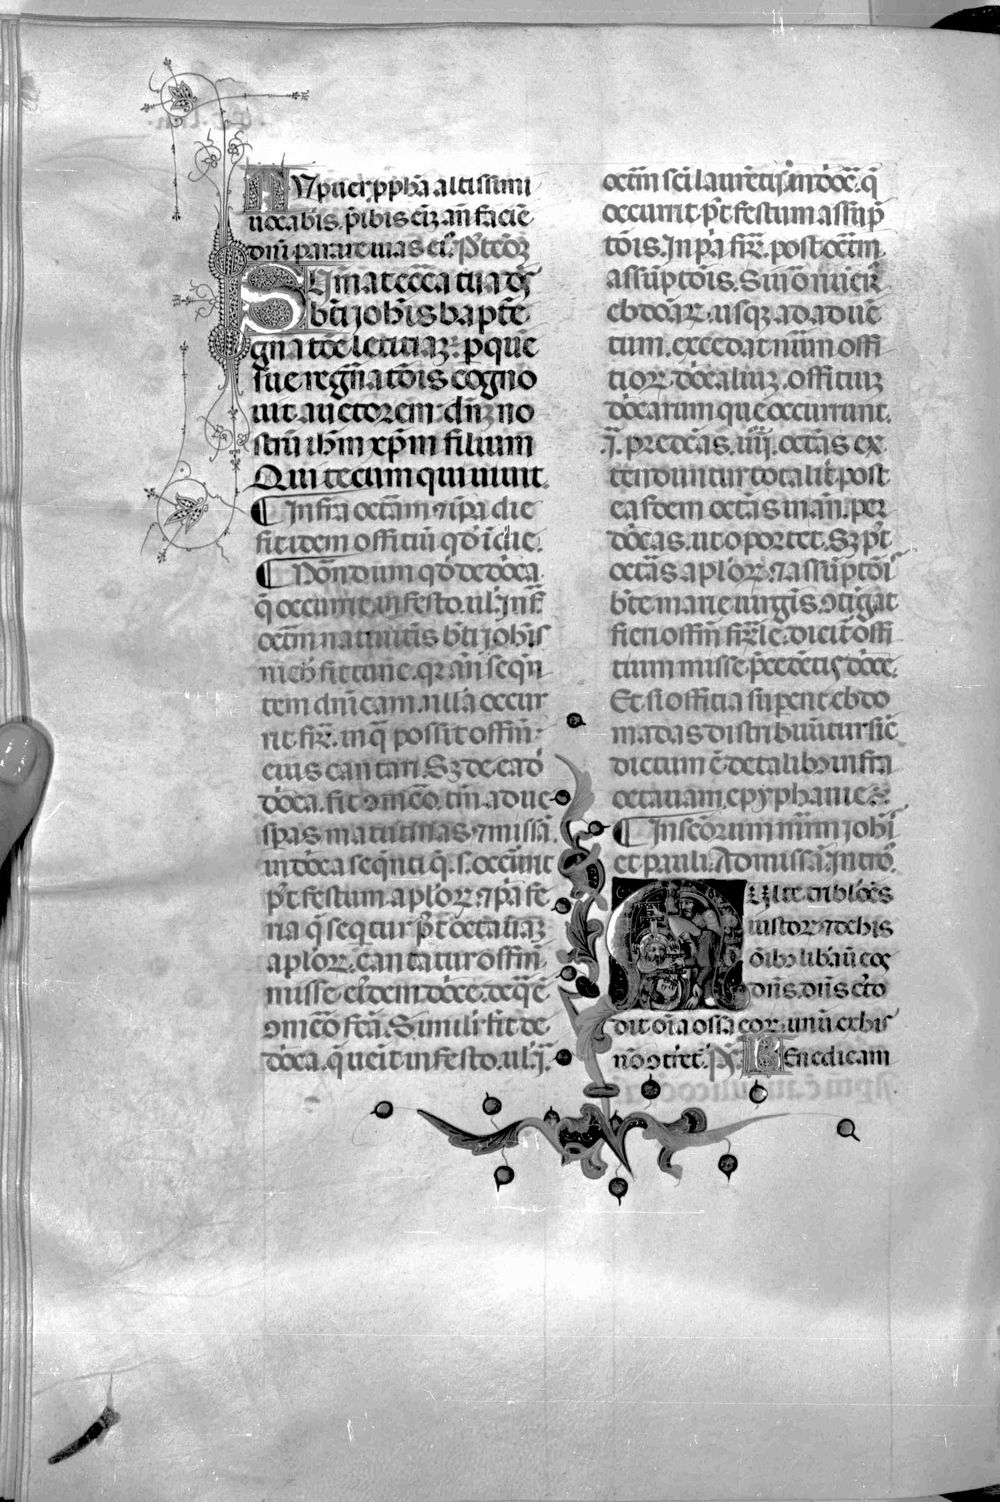 TU puer ppħa altissimi
uocabis. p̄ibis eīz an̄ facie
dn̄i parare uias eī. Pꝰ cōꝫ
SUmat ecc̄a tua dꝰ
bt̄i ioħis bapte
gnatōe leticiaꝫ: p que
sue regn̄atōis cogno
uit auctorem: dn̄ꝫ no
strū iħm xp̄m filium
Qui tecum qui uiuit.
¶ Infra octām ⁊ ip̄a die
fit idem offitiū qd̓ ī die.
¶ Nōndum qd̓ de dōca
q̄ occurrit in festo. ul̓. Inf̄
octm̄ natiuitis bt̄i ioħis
nich̓ fit tunc. qr̄ an̄ seqn̄
tem dn̄icam. nulla occur
rit fīr̄. in q̄ possit offm̄
eius cantari. Sꝫ de ead̓
dōca. fit ꝯmēō. tm̄ ad ue
spas matutinas ⁊ missā.
in dōca seqn̄ti q̄. s. occurrit
p̄t festum apl̓oꝝ. ⁊ p̄a fe
ria q̄ seqtur p̄t octauaꝫ
apl̓oꝝ. cantatur offm̄
misse eīdem dōce. de q̄ ē
ꝯmēō fc̄a. Simili fit de
dōca. q̄ ueīt in festo. ul̓. ī
octm̄ sc̄i laurētij. in dōc̄. q̄
occurrit. p̄t festum assūp
tōis. In p̄a fīr̄. post octm̄
assūptōis. Si uō nūeꝝ
ebdōaꝝ. usqꝫ ad adue
tum. excedat nūm offi
tioꝝ. dōcaliuꝫ. offitiuꝫ
dōcarum que occurrunt.
ī. predcās. iiij. octās ex
tenduntur totalit̓ post
easdem octās in an̄. per
dōcas. ut oportet. Sꝫ p̄t
octās apl̓oꝝ. ⁊ assūptōī
bt̄e marie uirgīs. ꝯtīgat
fieri offm̄ fīrīle. dicit̓ offi
tium misse p̄cedētis dōce.
Et si offitia supent ebdo
madas distribuūtur sic̄
dictum ē de talibꝫ infra
octauam epyphanie.
¶ In scōrum mr̄um ioħī
et pauli. Ad missā. Introꝰ.
MUlte tribl̓ōes
iustoꝝ ⁊ de his
oībꝫ libāū eos
dn̄s. dn̄s cꝰto
dit oīa ossa eoꝝ. unū ex his
nō ꝯteret. Pꝰ. BEnedicam